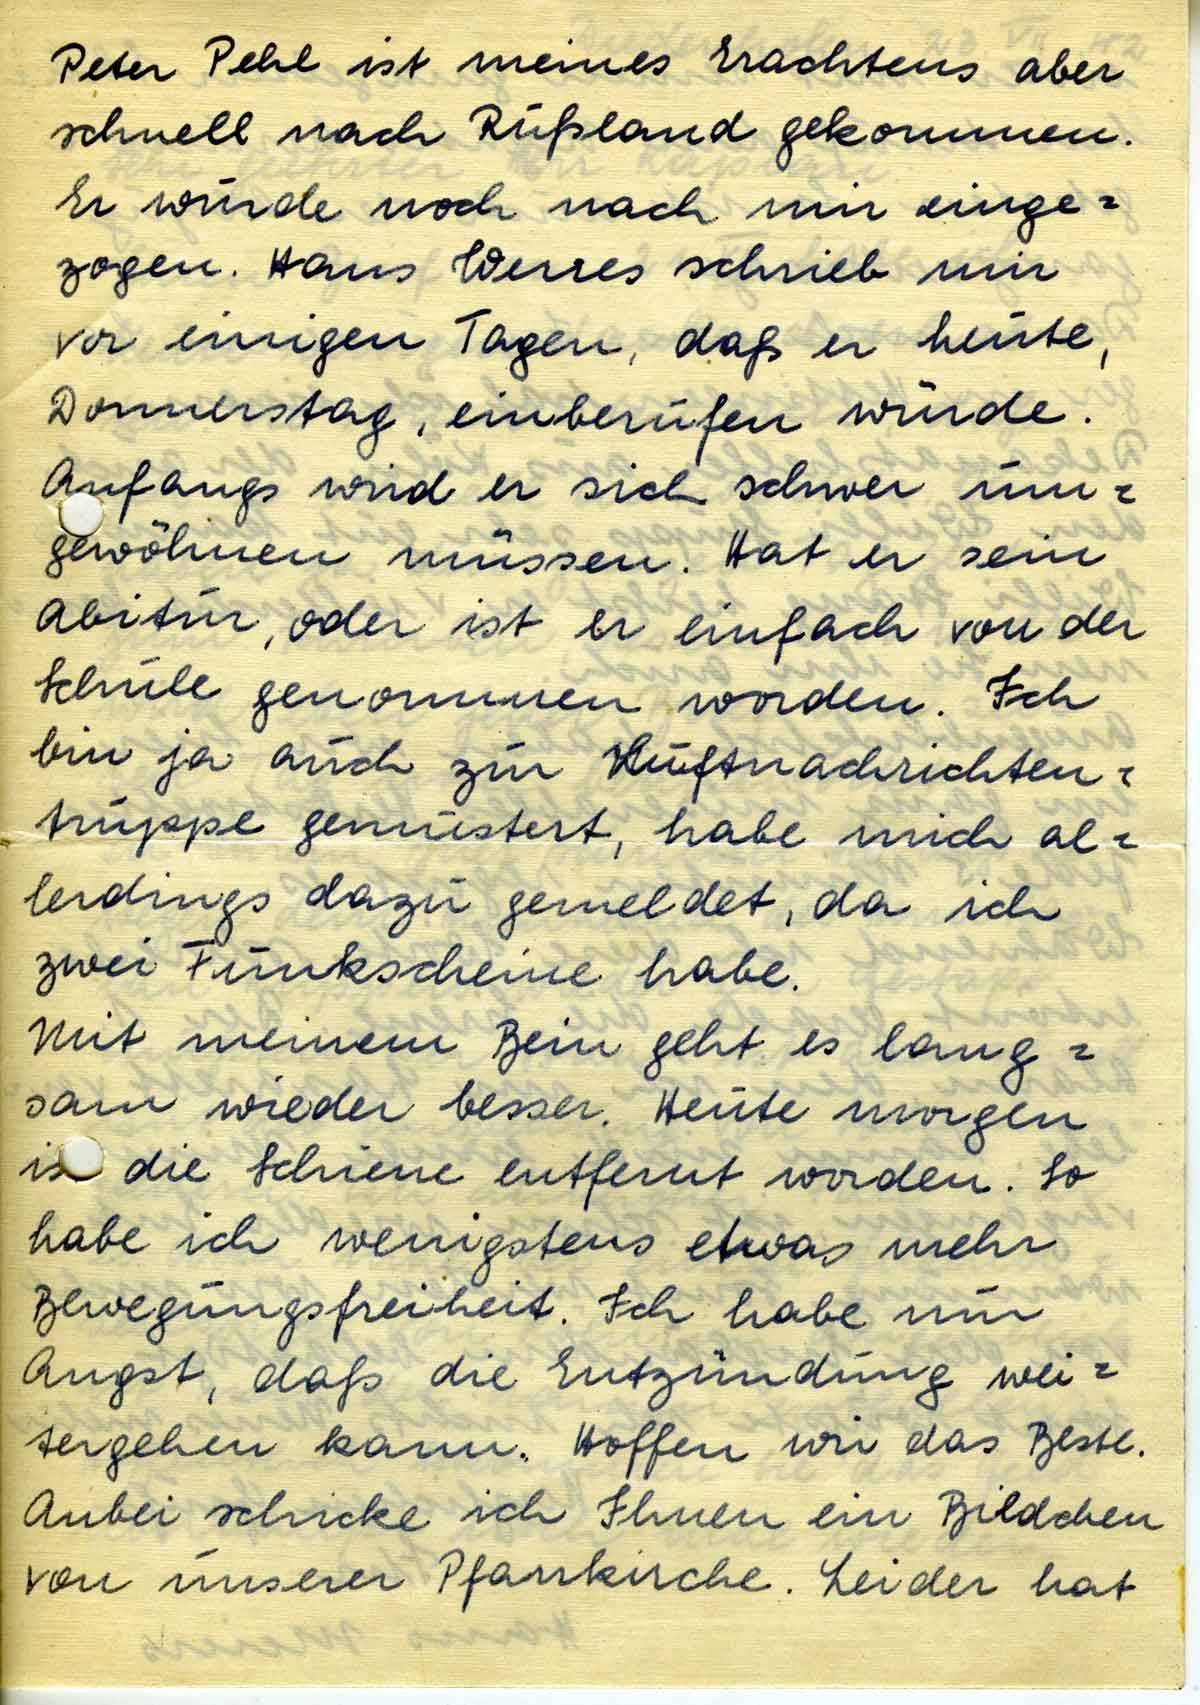 Peter Pehl ist meines Erachtens aber
schnell nach Rußland gekommen.
Er wurde noch nach mir einge=
zogen. Hans Werres schrieb mir
vor einigen Tagen, daß er heute,
Donnerstag, einberufen würde.
Anfangs wird er sich schwer um=
gewöhnen müssen. Hat er sein
Abitur, oder ist er einfach von der
Schule genommen worden. Ich
bin ja auch zur Luftnachrichten=
truppe gemustert, habe mich al=
lerdings dazu gemeldet, da ich
zwei Funkscheine habe.
Mit meinem Bein geht es lang=
sam wieder besser. Heute morgen
ist die Schiene entfernt worden. So
habe ich wenigstens etwas mehr
Bewegungsfreiheit. Ich habe nur
Angst, daß die Entzündung wei=
tergehen kann. Hoffen wir das Beste.
Anbei schicke ich Ihnen ein Bildchen
von unserer Pfarrkirche. Leider hat